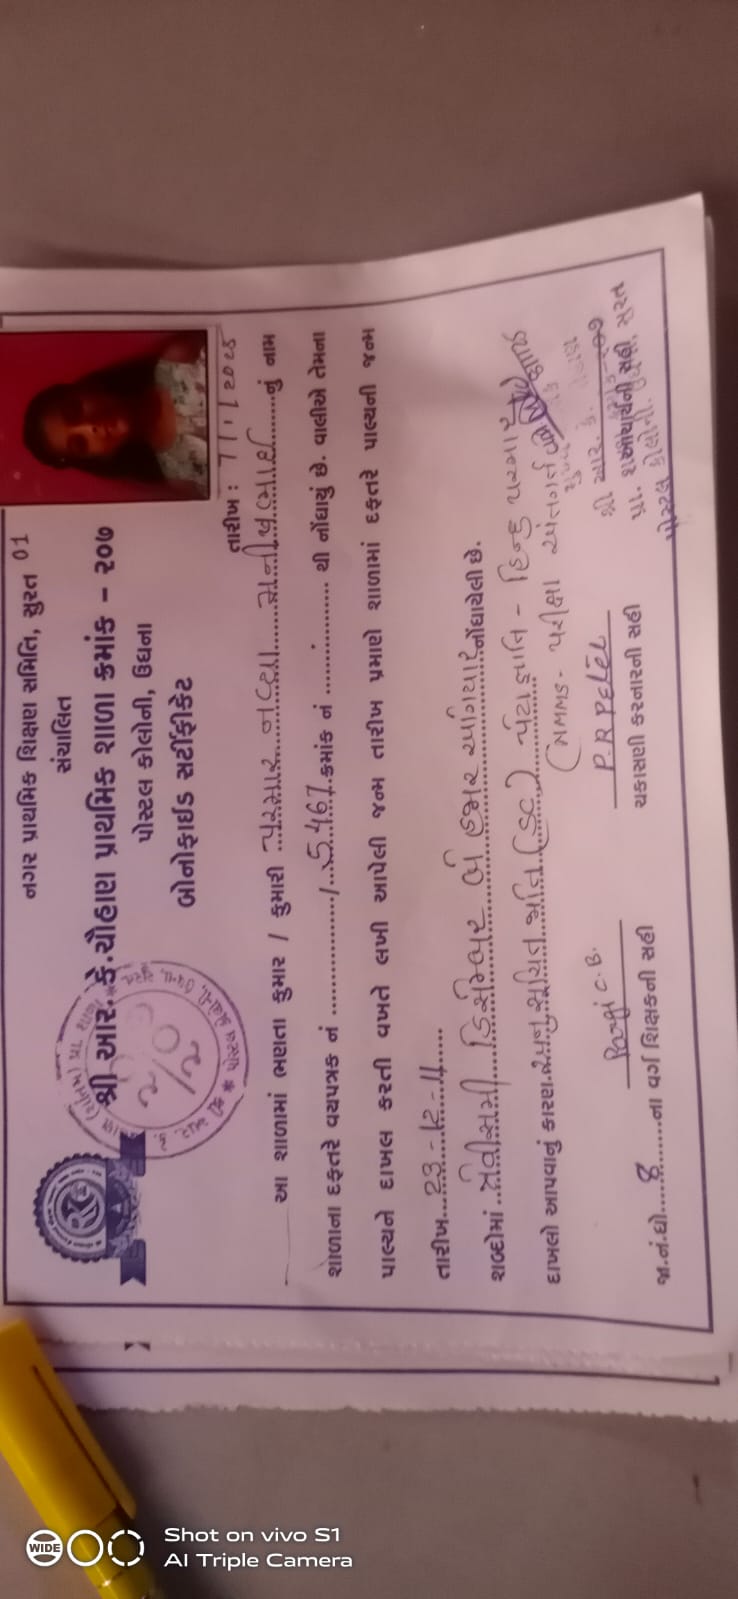 નગર પ્રાથમિક શિક્ષણ સમિતિ, સુરત 01
સંચાલિત
શ્રી આર. કે. ચૌહાણ પ્રાથમિક શાળા ક્રમાંક - ૨૦૭
પોસ્ટલ કોલોની, ઉધના
બોનોફાઈડ સર્ટીફીકેટ
તારીખ : 7/1/2025
આ શાળામાં ભણતા કુમાર / કુમારી પરમાર નવ્યા મનીષભાઈ નું નામ
શાળાના દફતરે વયપત્રક નં ............../..5467..ક્રમાંક નં ............... થી નોંધાયું છે. વાલીએ તેમના
પાલ્યને દાખલ કરતી વખતે લખી આપેલી જન્મ તારીખ પ્રમાણે શાળામાં દફતરે પાલ્યની જન્મ
તારીખ...23-12-11.....
શબ્દોમાં ..ત્રેવીસમી ડિસેમ્બર બે હજાર અગિયાર..નોંધાયેલી છે.
દાખલો આપવાનું કારણ..અનુસૂચિત જાતિ (SC) પેટાજ્ઞાતિ - હિન્દુ પરમાર
(NMMS- પરીક્ષા અંતર્ગત
P.R Patel
C.B.
જા.નં.ધો.....8.......ના વર્ગ શિક્ષકની સહી
ચકાસણી કરનારની સહી
આચાર્યની સહી
શ્રી આર. કે.
પોસ્ટલ કોલોની, સુરત
WIDE
Shot on vivo S1
AI Triple Camera